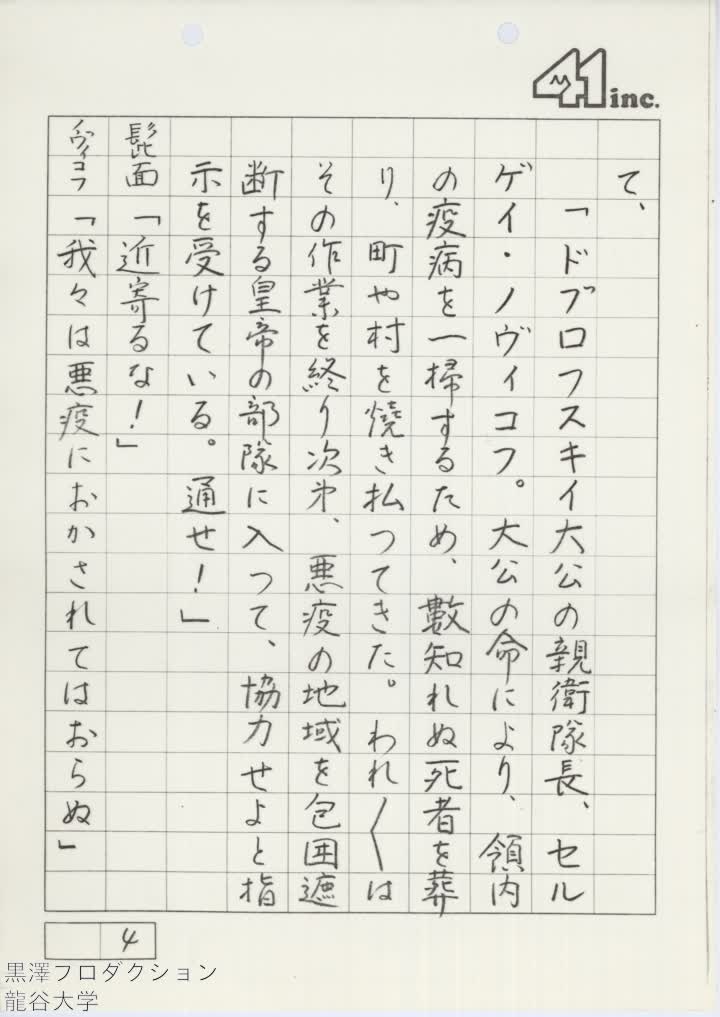 41 inc.
て、
「ドブロフスキイ大公の親衛隊長、セル
ゲイ・ノヴィコフ。大公の命により、領内
の疫病を一掃するため、數知れぬ死者を葬
り、町や村を焼き払つてきた。われ〱は
その作業を終り次㐧、悪疫の地域を包囲遮
断する皇帝の部隊に入つて、協力せよと指
示を受けている。通せ！」
髭面「近寄るな！」
ノヴィコフ「我々は悪疫におかされてはおらぬ」
4
黒澤プロダクション
龍谷大学